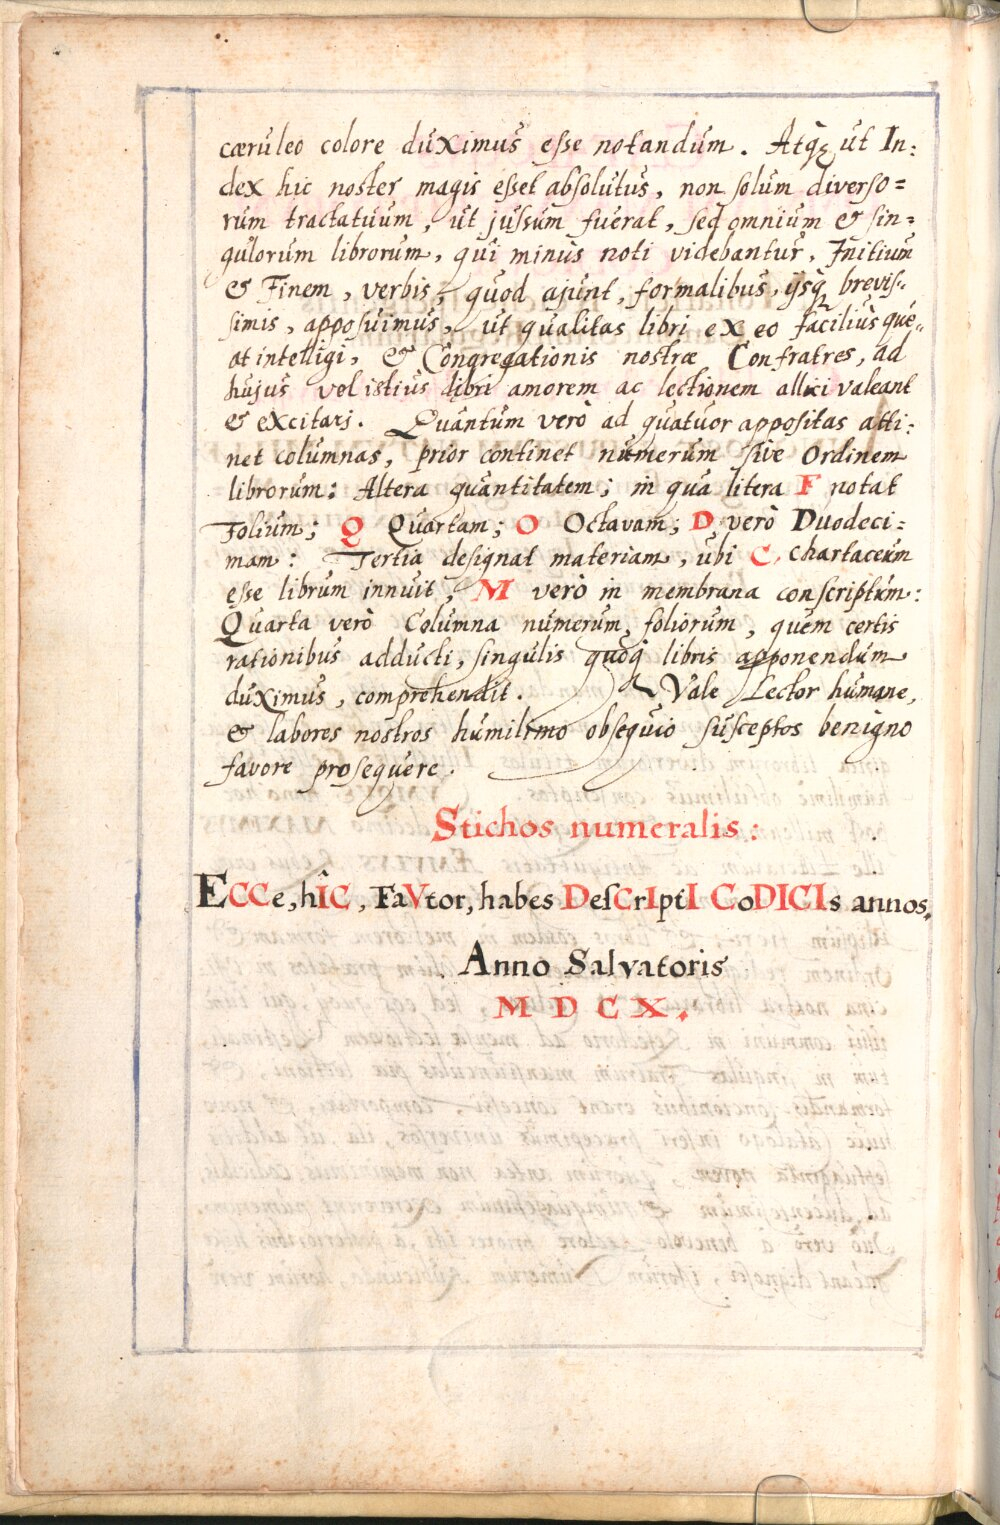 cæruleo colore duximus esse notandum. Atq; ut In:
dex hic noster magis esset absolutus, non solum diverso=
rum tractatuum, ut jussum fuerat, sed omnium & sin=
gulorum librorum, qui minùs noti videbantur, Initium
& Finem, verbis, quod ajunt, formalibus, ijsq; brevis-
simis, apposuimus, ut qualitas libri ex eo faciliùs que-
at intelligi, & Congregationis nostræ Confratres, ad
hujus vel istius libri amorem ac lectionem allici valeant
& excitari. Quantum verò ad quatuor appositas atti:
net columnas, prior continet numerum sive Ordinem
librorum: Altera quantitatem; in qua litera F notat
Folium; Q Quartam; O Octavam; D verò Duodeci=
mam: Tertia designat materiam, ubi C, chartaceum
esse librum innuit, M verò in membrana conscriptum:
Quarta verò Columna numerum, foliorum, quem certis
rationibus adducti, singulis quoq; libris apponendum
duximus, comprehendit. Vale Lector humane,
& labores nostros humilimo obsequio susceptos benigno
favore prosequere.
Stichos numeralis:
ECCe, hIC, FaVtor, habes DesCrIptI CoDICIs annos.
Anno Salvatoris
M D C X.